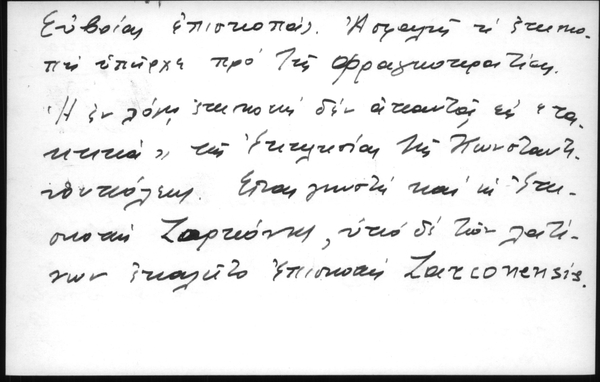 Εὐβοίας ἐπισκοπάς. Ἀσφαλῶς ἡ ἐπισκο-
πὴ ὑπῆρχε πρὸ τῆς Φραγκοκρατίας.
Ἡ ἐν λόγῳ ἐπισκοπὴ δὲν ἀπαντᾷ εἰς «τα-
κτικὰ» τῆς Ἐκκλησίας τῆς Κωνσταντι-
νουπόλεως. Εἶναι γνωστὴ καὶ ὡς Ἐπι-
σκοπὴ Ζαρκόνης, ὑπὸ δὲ τῶν λατί-
νων ἐκαλεῖτο ἐπισκοπὴ Zarconensis.